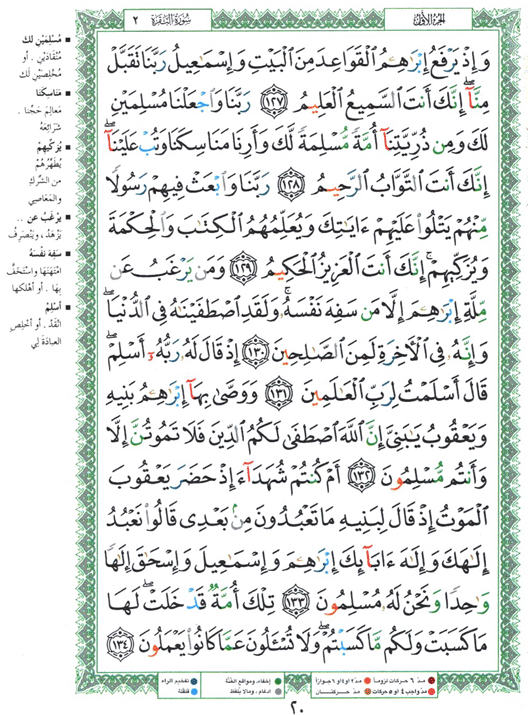 الجزء الأول
سورة البقرة ٢
وَإِذْ يَرْفَعُ إِبْرَٰهِـۧمُ ٱلْقَوَاعِدَ مِنَ ٱلْبَيْتِ وَإِسْمَٰعِيلُ رَبَّنَا تَقَبَّلْ
مِنَّآ إِنَّكَ أَنتَ ٱلسَّمِيعُ ٱلْعَلِيمُ ١٢٧ رَبَّنَا وَٱجْعَلْنَا مُسْلِمَيْنِ
لَكَ وَمِن ذُرِّيَّتِنَآ أُمَّةً مُّسْلِمَةً لَّكَ وَأَرِنَا مَنَاسِكَنَا وَتُبْ عَلَيْنَآ
إِنَّكَ أَنتَ ٱلتَّوَّابُ ٱلرَّحِيمُ ١٢٨ رَبَّنَا وَٱبْعَثْ فِيهِمْ رَسُولًا
مِّنْهُمْ يَتْلُوا۟ عَلَيْهِمْ ءَايَٰتِكَ وَيُعَلِّمُهُمُ ٱلْكِتَٰبَ وَٱلْحِكْمَةَ
وَيُزَكِّيهِمْ إِنَّكَ أَنتَ ٱلْعَزِيزُ ٱلْحَكِيمُ ١٢٩ وَمَن يَرْغَبُ عَن
مِّلَّةِ إِبْرَٰهِـۧمَ إِلَّا مَن سَفِهَ نَفْسَهُۥ وَلَقَدِ ٱصْطَفَيْنَٰهُ فِى ٱلدُّنْيَا
وَإِنَّهُۥ فِى ٱلْءَاخِرَةِ لَمِنَ ٱلصَّٰلِحِينَ ١٣٠ إِذْ قَالَ لَهُۥ رَبُّهُۥٓ أَسْلِمْ
قَالَ أَسْلَمْتُ لِرَبِّ ٱلْعَٰلَمِينَ ١٣١ وَوَصَّىٰ بِهَآ إِبْرَٰهِـۧمُ بَنِيهِ
وَيَعْقُوبُ يَٰبَنِىَّ إِنَّ ٱللَّهَ ٱصْطَفَىٰ لَكُمُ ٱلدِّينَ فَلَا تَمُوتُنَّ إِلَّا
وَأَنتُم مُّسْلِمُونَ ١٣٢ أَمْ كُنتُمْ شُهَدَآءَ إِذْ حَضَرَ يَعْقُوبَ
ٱلْمَوْتُ إِذْ قَالَ لِبَنِيهِ مَا تَعْبُدُونَ مِنۢ بَعْدِى قَالُوا۟ نَعْبُدُ
إِلَٰهَكَ وَإِلَٰهَ ءَابَآئِكَ إِبْرَٰهِـۧمَ وَإِسْمَٰعِيلَ وَإِسْحَٰقَ إِلَٰهًا
وَٰحِدًا وَنَحْنُ لَهُۥ مُسْلِمُونَ ١٣٣ تِلْكَ أُمَّةٌ قَدْ خَلَتْ لَهَا
مَا كَسَبَتْ وَلَكُم مَّا كَسَبْتُمْ وَلَا تُسْـَٔلُونَ عَمَّا كَانُوا۟ يَعْمَلُونَ ١٣٤
مُسْلِمَيْنِ لك
مُنْقَادَيْنِ . أو
مُخْلِصَيْنِ لَك
مَنَاسِكَنَا
مَعَالِمَ حَجِّنَا .
شَرَائِعَهُ
يُزَكِّيهِمْ
يُطَهِّرُهُمْ
من الشِّرْكِ
والمَعَاصِي
يَرْغَبُ عن ..
يَزْهَدُ ، ويَنْصَرِفُ
سَفِهَ نَفْسَهُ
امْتَهَنَهَا واسْتَخَفَّ
بِهَا . أو أهْلَكَها
أَسْلِمْ
انْقَدْ . أو أخْلِصِ
العِبَادَةَ لِي
مدّ ٦ حركات لزوماً
مدّ ٢ أو ٤ أو ٦ جوازاً
مدّ واجب ٤ أو ٥ حركات
مدّ حركتان
إخفاء، ومواقع الغُنَّة
ادغام ، ومالا يُلفَظ
تفخيم الراء
قلقلة
٢٠